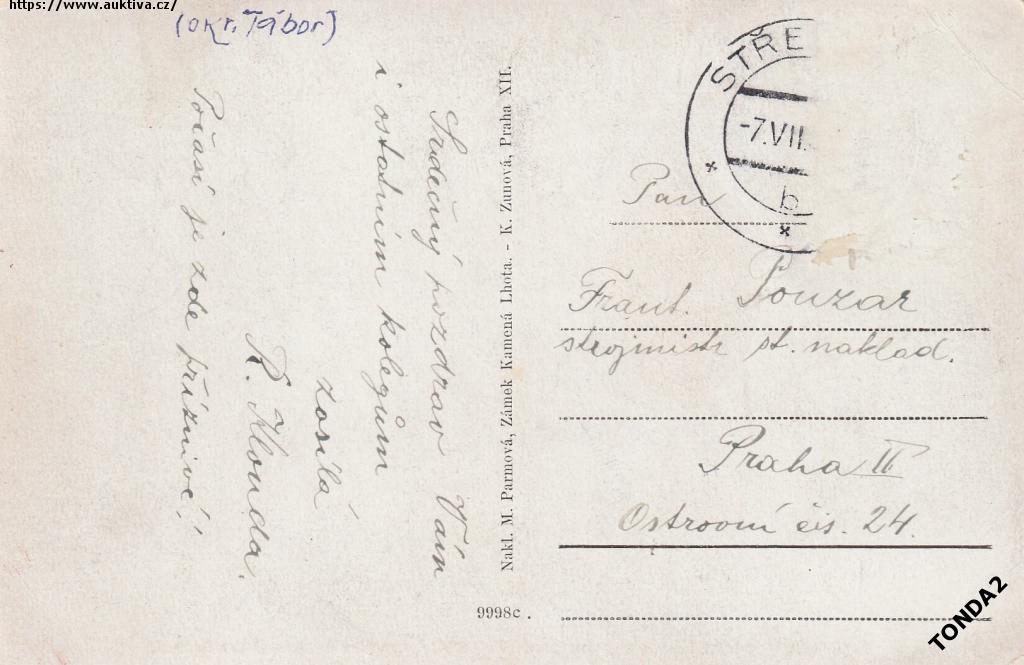 https://www.auktiva.cz/
(okr. Tábor)
Srdečný pozdrav Vám
i ostatním kolegům
zasílá
K. Klouda.
Počasí je zde příznivé!
Nakl. M. Parmová, Zámek Kamená Lhota. - K. Zunová, Praha XII.
9998c.
STŘE
-7.VII.
b
Pan
Frant. Souzar
strojmistr st. naklad.
Praha II
Ostrovní čís. 24.
TONDA2